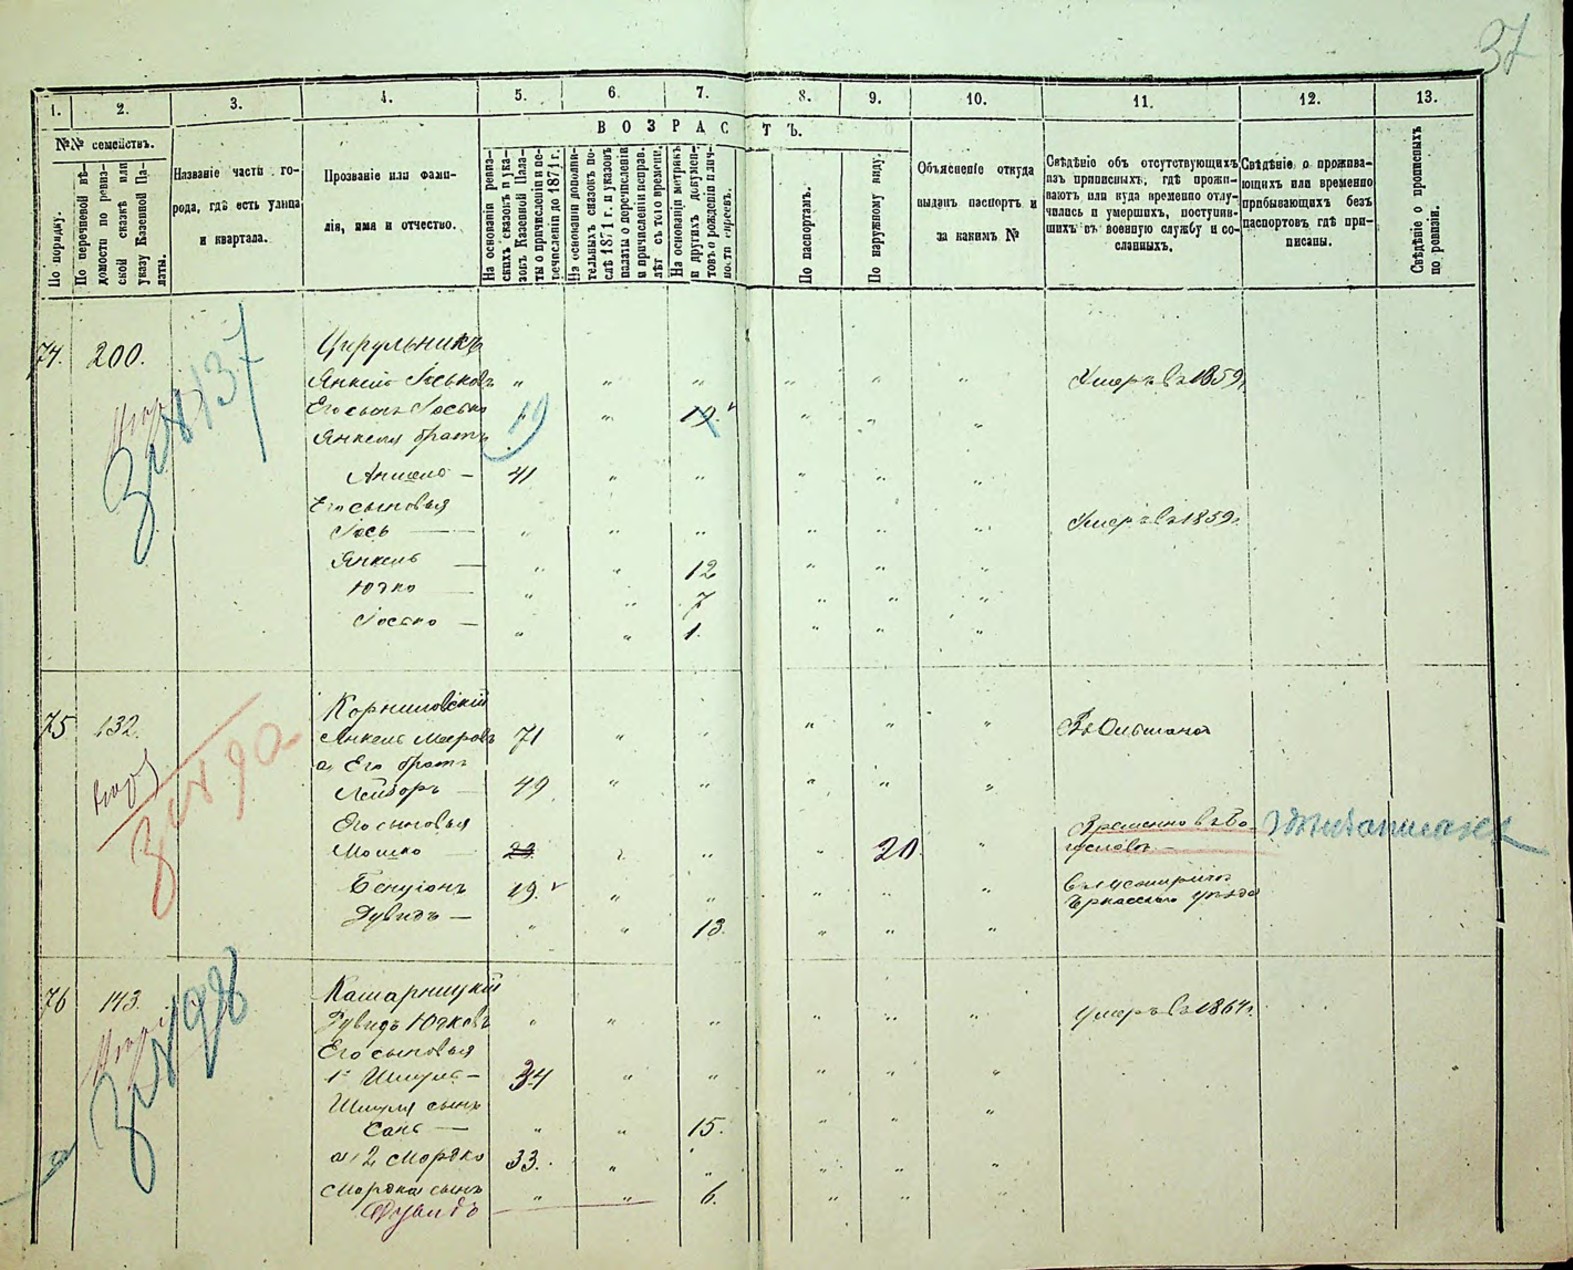 37
1. 2. 3. 4. 5. 6. 7. 8. 9. 10. 11. 12. 13.
№№ семействъ.
По порядку.
По перечневой вѣ-
домости по ревиз-
ской сказкѣ или
указу Казенной Па-
латы.
Названіе части го-
рода, гдѣ есть улица
и квартала.
Прозваніе или фами-
лія, имя и отчество.
ВОЗРАСТЪ.
На основаніи ревиз-
скихъ сказокъ и ука-
зовъ Казенной Пала-
ты о причисленіи и пе-
речисленіи до 1871 г.
На основаніи дополни-
тельныхъ сказокъ по-
слѣ 1871 г. и указовъ
палаты о перечисленіи
и причисленіи исправ.
лѣт съ того времени.
На основаніи метрикъ
и другихъ докумен-
товъ о рожденіи и лич-
ности евреевъ.
По паспортамъ.
По наружному виду.
Объясненіе откуда
выданъ паспортъ и
за какимъ №
Свѣдѣніе объ отсутствующихъ
изъ приписныхъ, гдѣ прожи-
ваютъ или куда временно отлу-
чились и умершихъ, поступив-
шихъ въ военную службу и со-
сланныхъ.
Свѣдѣніе о прожива-
ющихъ или временно
прибывающихъ безъ
паспортовъ гдѣ при-
писаны.
Свѣдѣніе о прописныхъ
по ревизіи.
74. 200. Цирульникъ
Янкель Іоськовъ " " " " " " Умеръ въ 1859
Его сынъ Іосько 19 " 19. " " "
Янкеля братъ
Аншель — 41 " " " " "
Его сыновья
Іось — " " " " " " Умеръ въ 1859.
Янкель — " " 12 " " "
Юдко — " " 7 " " "
Іосько — " " 1. " " "
137
75 132. Корниловскій
Янкель Меировъ 71 " " " " " Въ Ольшаной
а, Его братъ
Лейзоръ — 49 " " " " "
Его сыновья
Мошко 23 " " " 20 " Временно въ Бо-
гуславѣ —
Бенціонъ 19. " " " " "
Черкасскаго уѣзда
Дувидъ — " " 13. " " "
90
76 143. Кашарницкій
Дувидъ Юдковъ " " " " " " Умеръ въ 1864 г.
Его сыновья
1е Шмуль — 34 " " " " "
Шмуля сынъ
— " " 15. " " "
а, 2 Мордко 33. " " " " "
Мордка сынъ " " 6. " "
Дувидъ